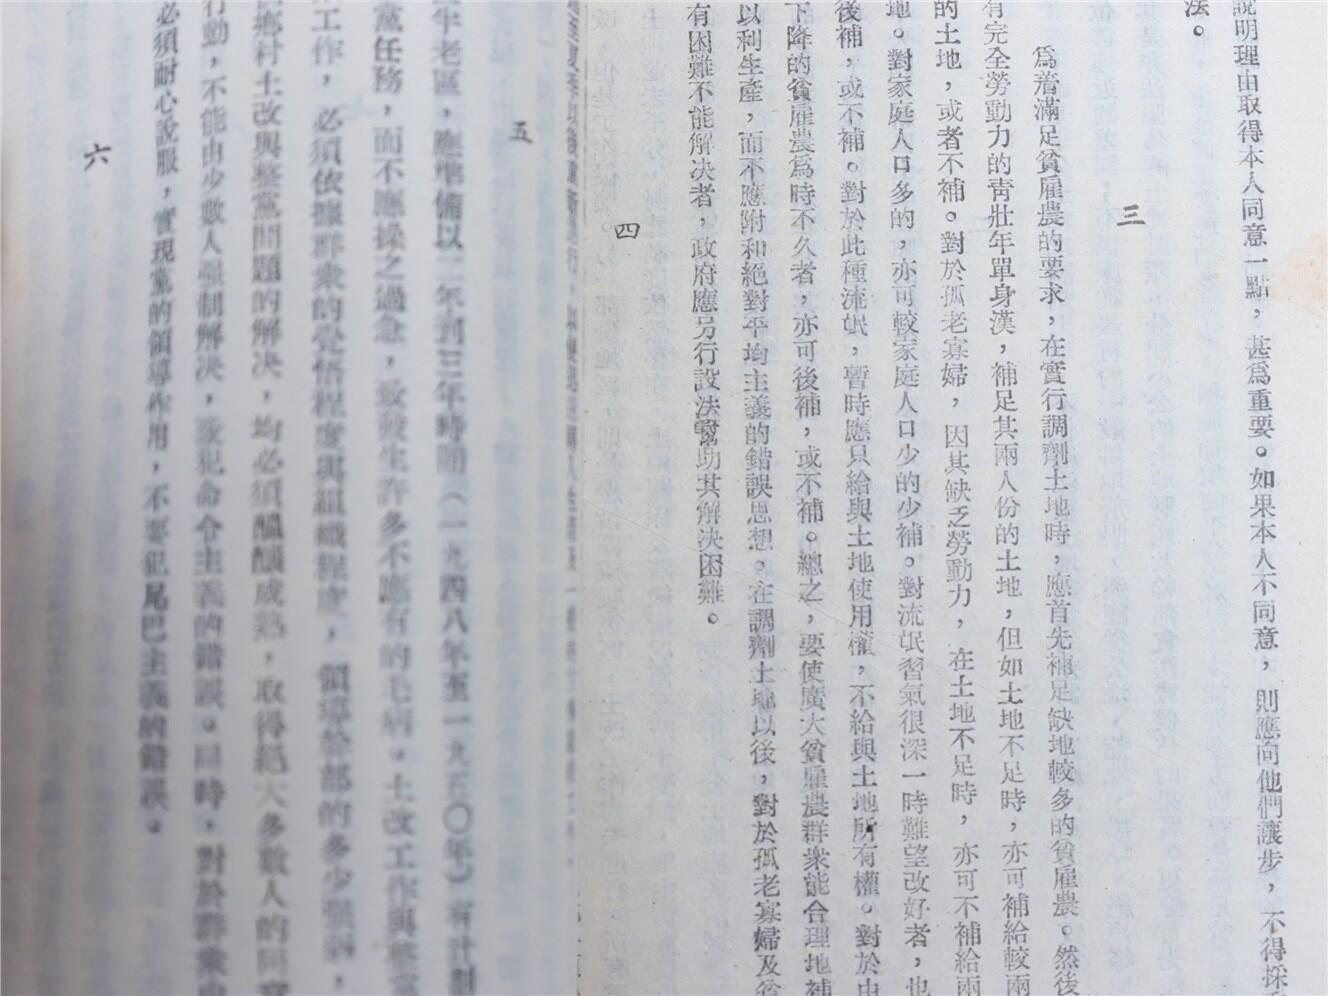 說明理由取得本人同意一點，甚爲重要。如果本人不同意，則應向他們讓步，不得採
法。
三
爲着滿足貧雇農的要求，在實行調劑土地時，應首先補足缺地較多的貧雇農。然後
有完全勞動力的靑壯年單身漢，補足其兩人份的土地，但如土地不足時，亦可補給較兩
的土地，或者不補。對於孤老寡婦，因其缺乏勞動力，在土地不足時，亦可不補給兩
地。對家庭人口多的，亦可較家庭人口少的少補。對流氓習氣很深一時難望改好者，也
後補，或不補。對於此種流氓，暫時應只給與土地使用權，不給與土地所有權。對於由
下降的貧雇農爲時不久者，亦可後補，或不補。總之，要使廣大貧雇農群衆能合理地補
以利生產，而不應附和絕對平均主義的錯誤思想。在調劑土地以後，對於孤老寡婦及貧
有困難不能解决者，政府應另行設法幫助其解决困難。
四
五
半老區，應準備以二年到三年時間（一九四八年至一九五〇年）有計劃
黨任務，而不應操之過急，致發生許多不應有的毛病。土改工作與整黨
工作，必須依據群衆的覺悟程度與組織程度，領導幹部的多少强弱，
鄉村土改與整黨問題的解决，均必須醞釀成熟，取得絕大多數人的同意
行動，不能由少數人强制解决，致犯命令主義的錯誤。同時，對於群衆中
必須耐心說服，實現黨的領導作用，不要犯尾巴主義的錯誤。
六